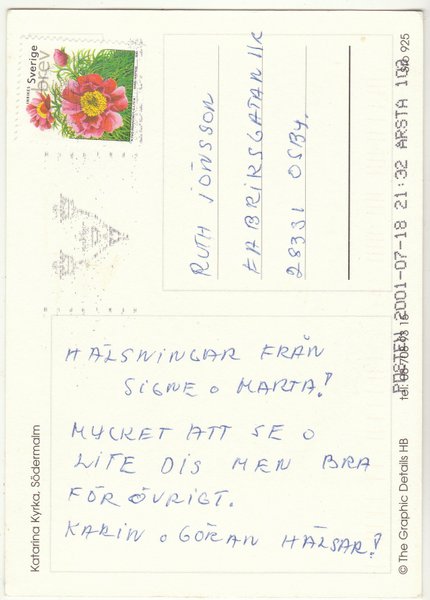 HÄLSNINGAR FRÅN
SIGNE o MARTA!
MYCKET ATT SE o
LITE DIS MEN BRA
FÖR ÖVRIGT.
KARIN o GÖRAN HÄLSAR!
RUTH JÖNSSON
FABRIKSGATAN 11C
28331 OSBY.
Sverige
brev
POSTEN 2001-07-18 21:32 ARSTA 102
Sto 925
© The Graphic Details HB
Katarina Kyrka, Södermalm